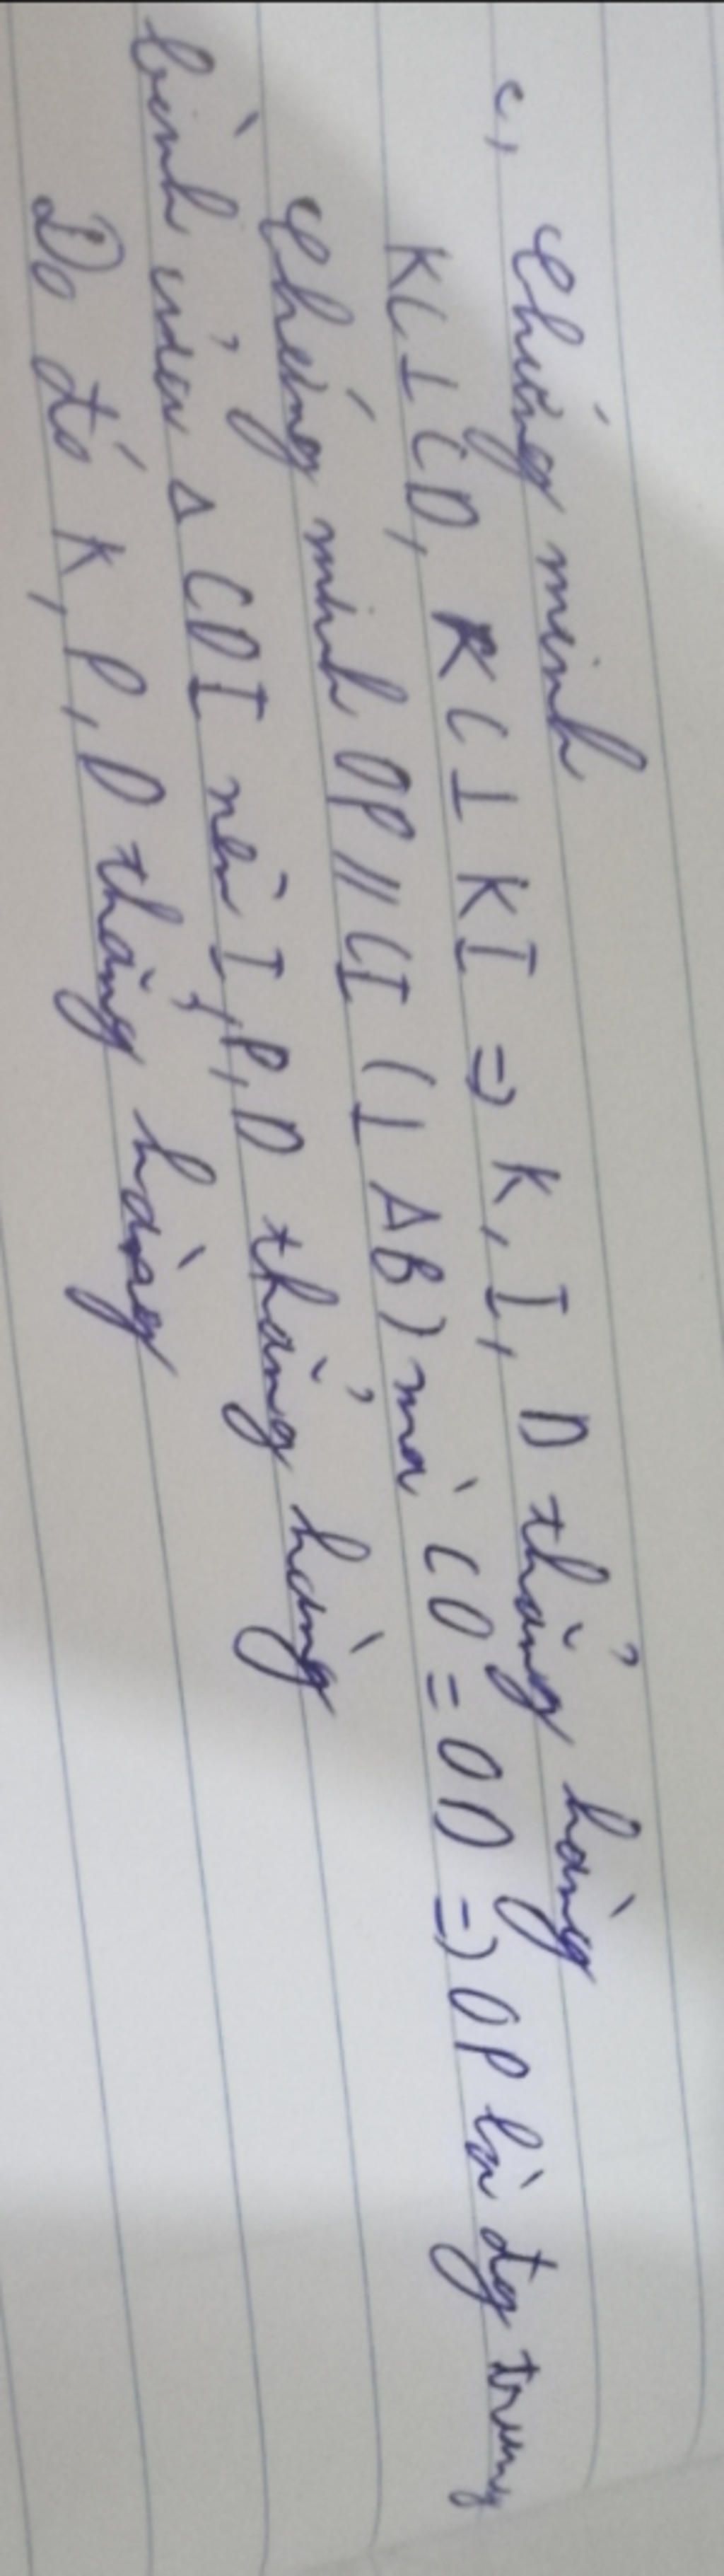 c, Chứng minh
KC ⊥ CD, KC ⊥ KI => K, I, D thẳng hàng
Chứng minh OP // CI (⊥ AB) mà CO = OD => OP là đg trung
bình của Δ CDI nên I, P, D thẳng hàng
Do đó K, P, D thẳng hàng